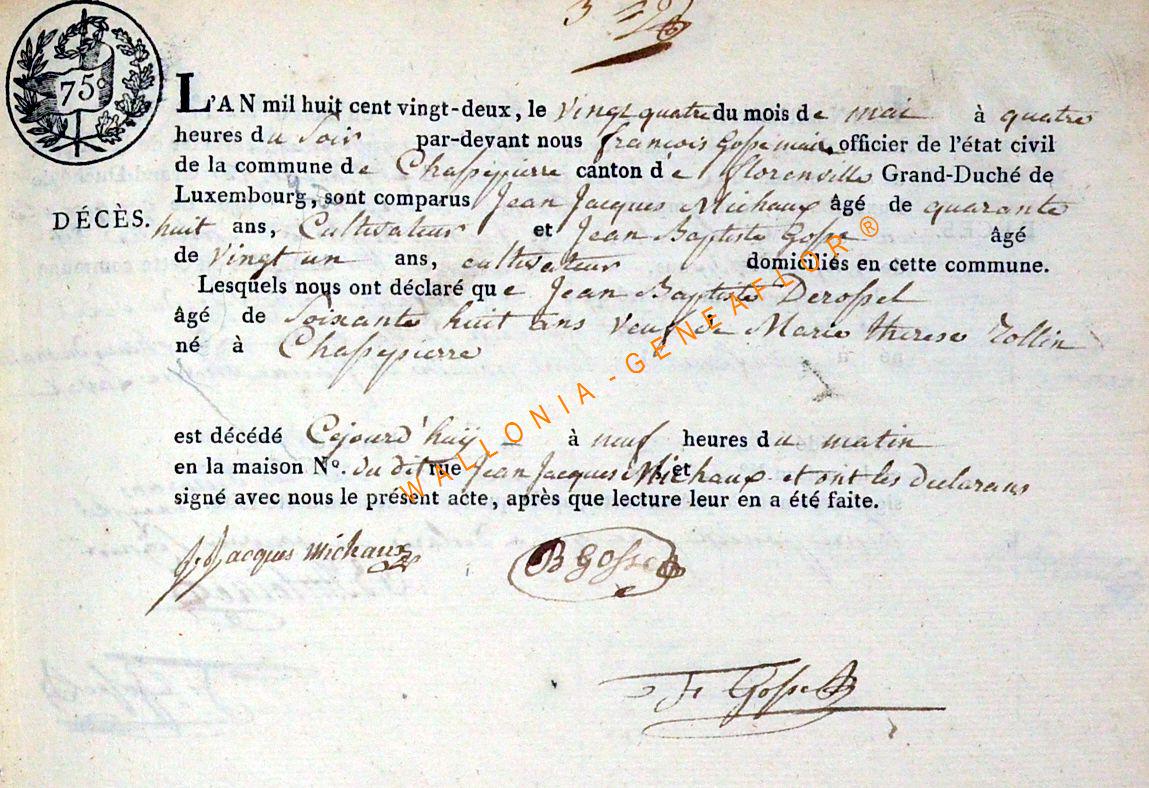 75c
L'AN mil huit cent vingt-deux, le vingt quatre du mois de mai à quatre
heures du soir par-devant nous francois Gosse maire, officier de l'état civil
de la commune de Chassepierre canton de florenville Grand-Duché de
Luxembourg, sont comparus Jean Jacques Michaux âgé de quarante
DÉCÈS.
huit ans, Cultivateur et Jean Baptiste Gosse âgé
de vingt un ans, cultivateur domiciliés en cette commune.
Lesquels nous ont déclaré que Jean Baptiste Derossel
âgé de Soixante huit ans veuf de Marie therese
né à Chassepierre
est décédé Cejourd'huÿ à neuf heures du matin
en la maison No. du dit rue Jean Jacques Michaux et et ont les declarans
signé avec nous le présent acte, après que lecture leur en a été faite.
Jacques michaux
B Gosse
F Gosse
WALLONIA - GENEAFLOR ®